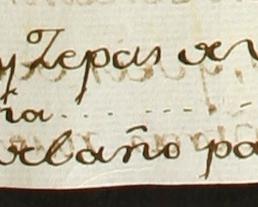 y Zepas de v
ña
el año pa